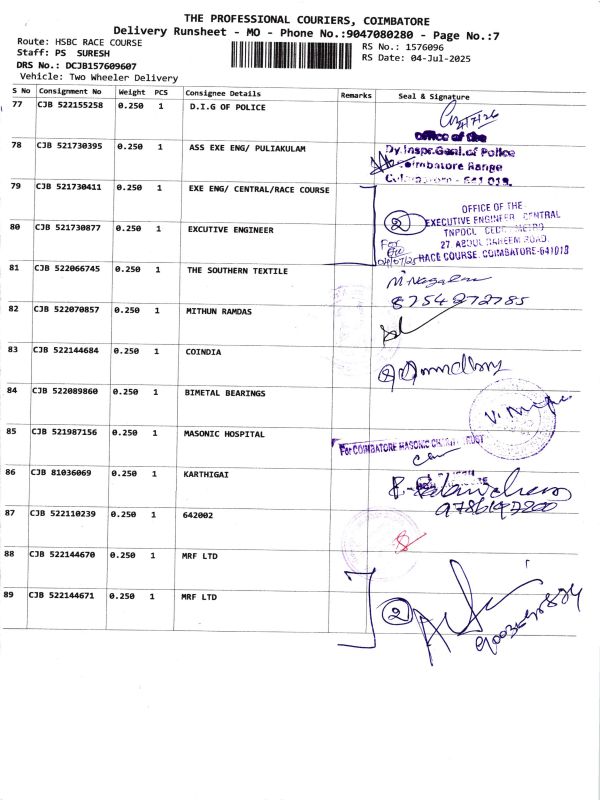 THE PROFESSIONAL COURIERS, COIMBATORE
Delivery Runsheet - MO - Phone No.:9047080280 - Page No.:7
Route: HSBC RACE COURSE
Staff: PS SURESH
DRS No.: DCJB157609607
Vehicle: Two Wheeler Delivery
RS No.: 1576096
RS Date: 04-Jul-2025
S No Consignment No Weight PCS Consignee Details Remarks Seal & Signature
77 CJB 522155258 0.250 1 D.I.G OF POLICE
Office of the
Dy.Inspr.Genl.of Police
Coimbatore Range
78 CJB 521730395 0.250 1 ASS EXE ENG/ PULIAKULAM
79 CJB 521730411 0.250 1 EXE ENG/ CENTRAL/RACE COURSE
80 CJB 521730877 0.250 1 EXCUTIVE ENGINEER
2
OFFICE OF THE
EXECUTIVE ENGINEER CENTRAL
27, ABDUL RAHEEM ROAD,
RACE COURSE, COIMBATORE-641018
For
04/07/25
81 CJB 522066745 0.250 1 THE SOUTHERN TEXTILE
8754272785
82 CJB 522070857 0.250 1 MITHUN RAMDAS
83 CJB 522144684 0.250 1 COINDIA
84 CJB 522089860 0.250 1 BIMETAL BEARINGS
85 CJB 521987156 0.250 1 MASONIC HOSPITAL
For COIMBATORE MASONIC CHARITY TRUST
86 CJB 81036069 0.250 1 KARTHIGAI
87 CJB 522110239 0.250 1 642002
88 CJB 522144670 0.250 1 MRF LTD
89 CJB 522144671 0.250 1 MRF LTD
2